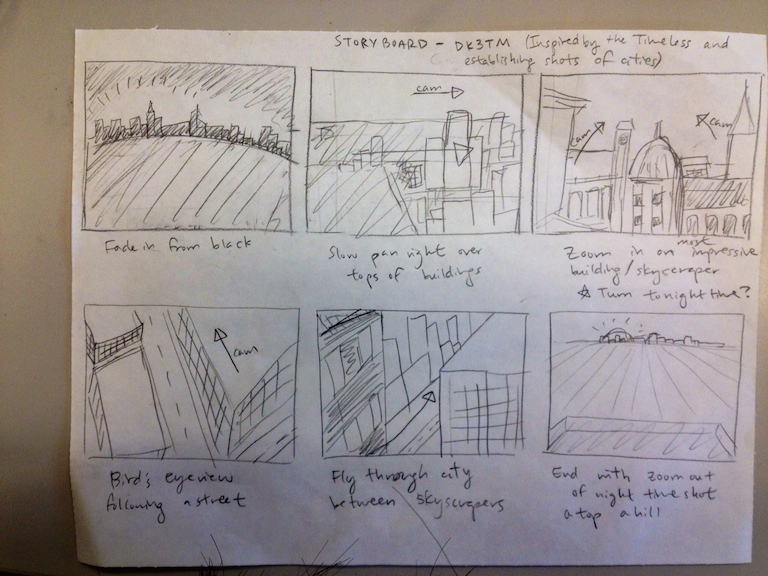 STORYBOARD - DK3TM (Inspired by the Timeless and
establishing shots of cities)
cam
cam
cam
Fade in from black
Slow pan right over
tops of buildings
Zoom in on most impressive
building/skyscraper
☆ Turn to night time?
cam
Bird's eyeview
following a street
Fly through city
between skyscrapers
End with zoom out
of night time shot
a top a hill